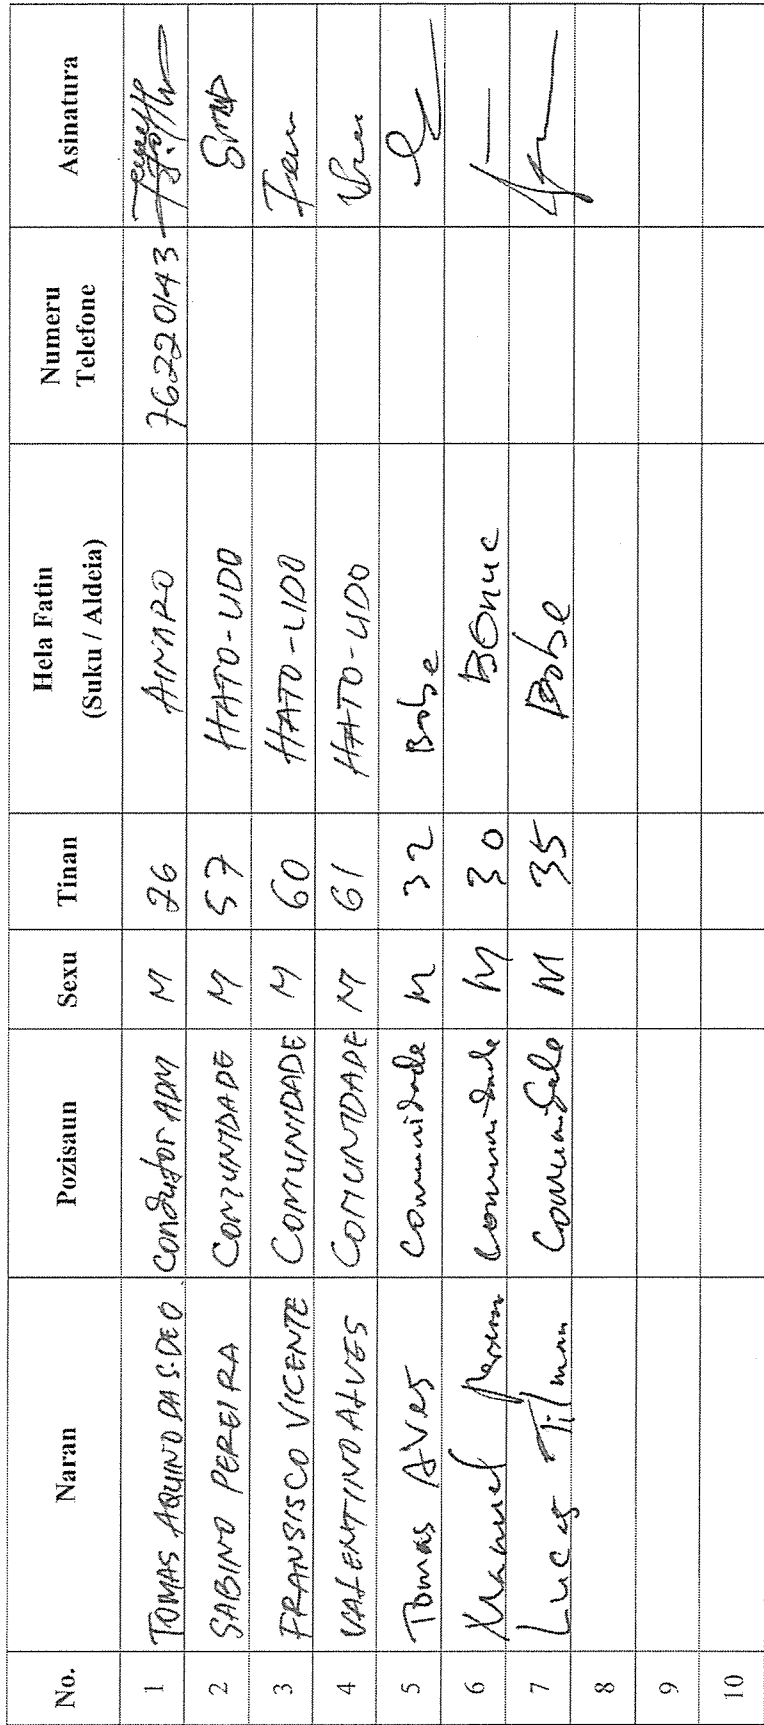 No. Naran Pozisaun Sexu Tinan Hela Fatin (Suku / Aldeia) Numeru Telefone Asinatura
1 TOMAS AQUINO DA S. DE O. Condutor ADM M 26 AINARO 76220143
2 SABINO PEREIRA COMUNIDADE M 57 HATO-UDO
3 FRANSISCO VICENTE COMUNIDADE M 60 HATO-UDO
4 VALENTINO ALVES COMUNIDADE M 61 HATO-UDO
5 Tomas AVes Comunidade M 32 Bobe
6 Manuel Comunidade M 30 BOnuc
7 Lucas Tilman Comunidade M 35 Bobe
8
9
10